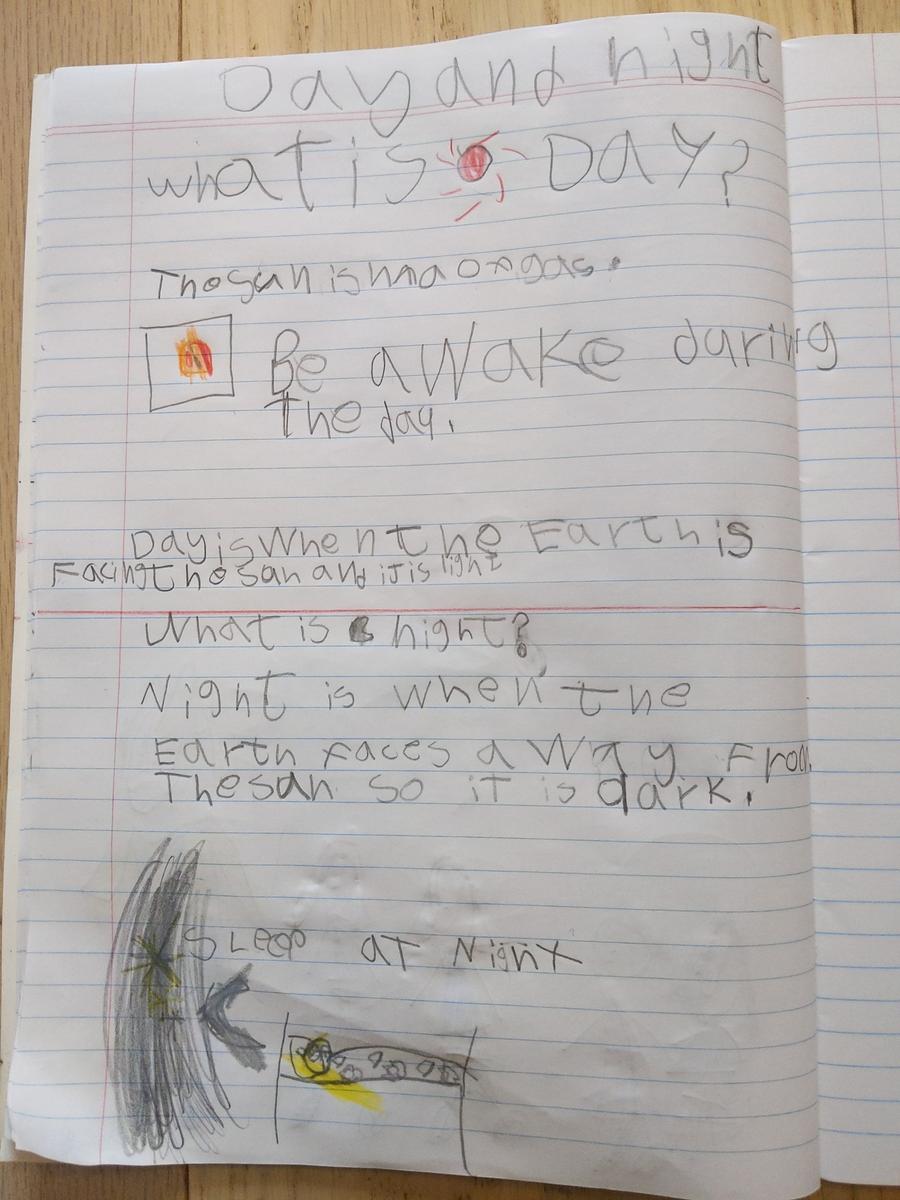 Day and night
what is DAY?
The san is hna ox gas.
Be aWake daring
The day.
Day is When the Earth is
Facing the san and it is light
What is night?
Night is when the
Earth faces away From
The san so it is dark.
SLeep aT Night